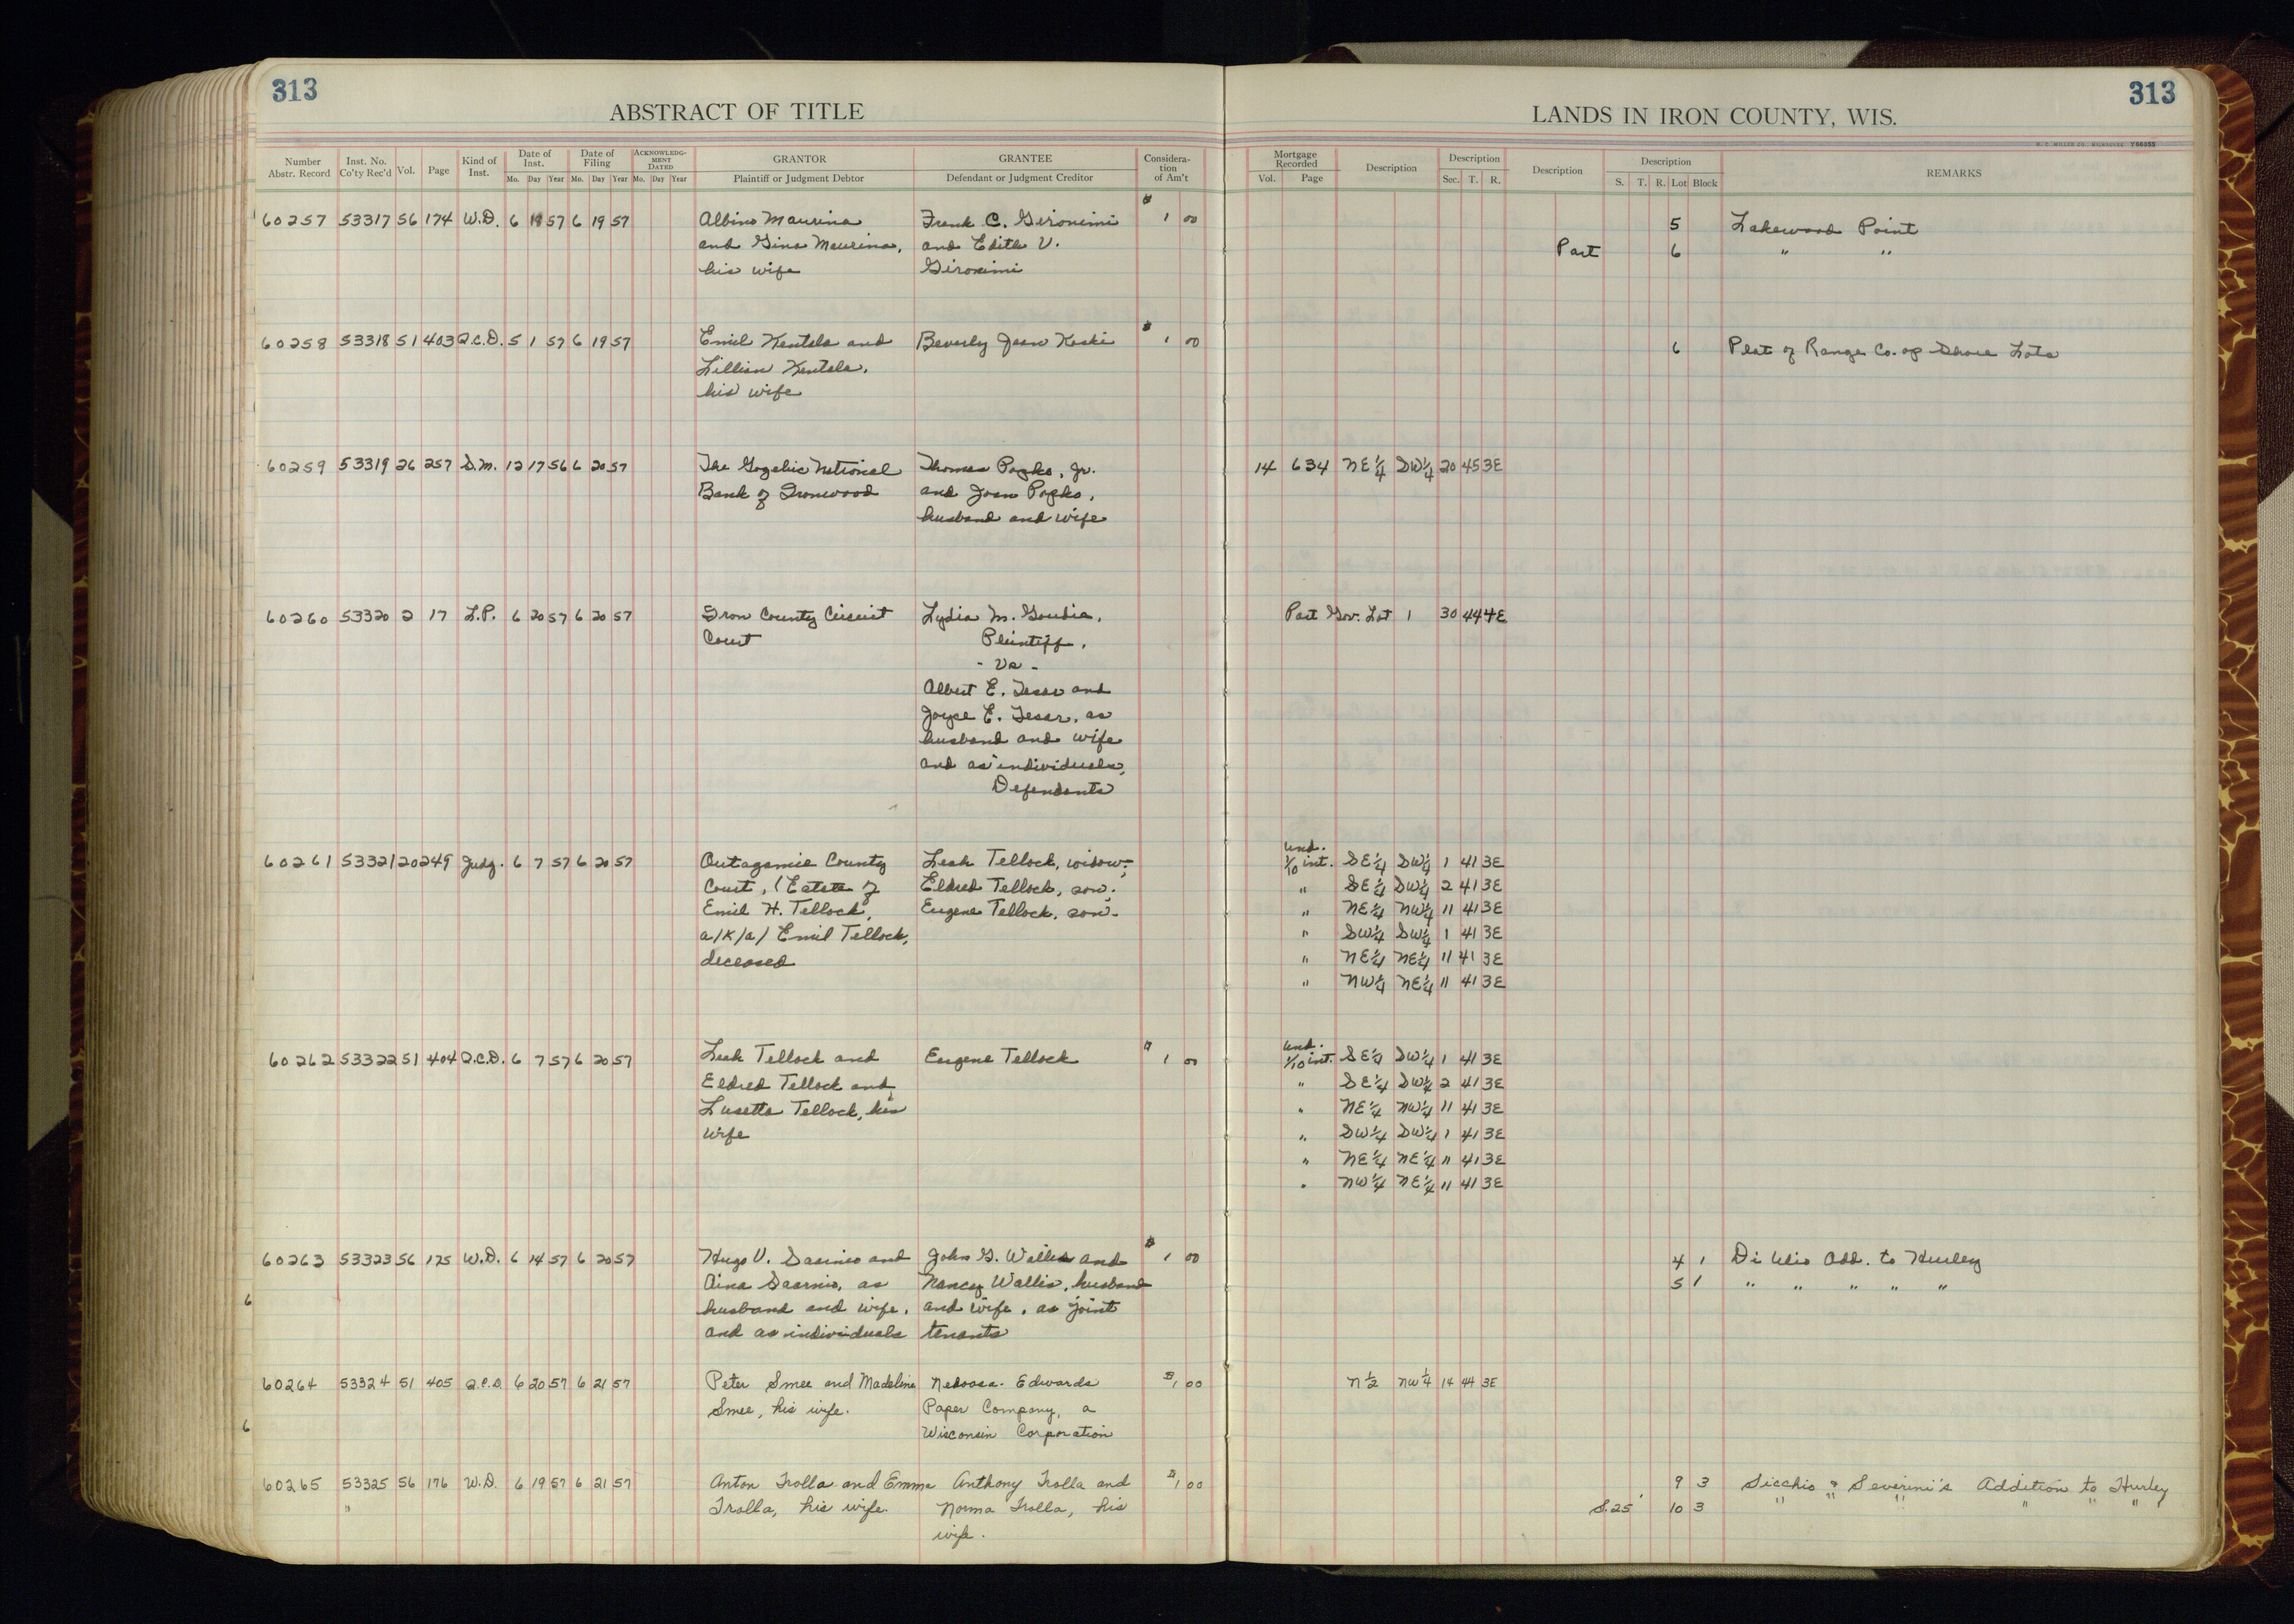 313
ABSTRACT OF TITLE
Number Abstr. Record Inst. No. Co'ty Rec'd Vol. Page Kind of Inst. Date of Inst. Mo. Day Year Date of Filing Mo. Day Year ACKNOWLEDGMENT DATED Mo. Day Year GRANTOR Plaintiff or Judgment Debtor GRANTEE Defendant or Judgment Creditor Consideration of Am't
60257 53317 56 174 W.D. 6 19 57 6 19 57 Albino Maurina Frank C. Gironimi $ 1 00
and Gina Maurina, and Edith V.
his wife Gironimi
60258 53318 51 403 Q.C.D. 5 1 57 6 19 57 Emil Kentala and Beverly Jean Koski $ 1 00
Lillian Kentala,
his wife
60259 53319 26 257 S.M. 12 17 56 6 20 57 The Gogebic National Thomas Popko, Jr.
Bank of Ironwood and Joan Popko,
husband and wife
60260 53320 2 17 L.P. 6 20 57 6 20 57 Iron County Circuit Lydia M. Goudia,
Court Plaintiff,
- vs -
Albert E. Tesar and
Joyce E. Tesar, as
husband and wife
and as individuals,
Defendants
60261 53321 20 249 Judg. 6 7 57 6 20 57 Outagamie County Leah Tellock, widow;
Court, (Estate of Eldred Tellock, son;
Emil H. Tellock, Eugene Tellock, son.
a/k/a/ Emil Tellock,
deceased
60262 53322 51 404 Q.C.D. 6 7 57 6 20 57 Leah Tellock and Eugene Tellock $ 1 00
Eldred Tellock and
Lusetta Tellock, his
wife
60263 53323 56 175 W.D. 6 14 57 6 20 57 Hugo V. Saarnio and John G. Wallis and $ 1 00
Aina Saarnio, as Nancy Wallis, husband
husband and wife, and wife, as joint
and as individuals tenants
60264 53324 51 405 Q.C.D. 6 20 57 6 21 57 Peter Smee and Madeline Nekoosa-Edwards $ 1 00
Smee, his wife. Paper Company, a
Wisconsin Corporation
60265 53325 56 176 W.D. 6 19 57 6 21 57 Anton Trolla and Emma Anthony Trolla and $ 1 00
" Trolla, his wife. Norma Trolla, his
wife.
6
6
313
LANDS IN IRON COUNTY, WIS.
H. C. MILLER CO. MILWAUKEE Y66355
Mortgage Recorded Vol. Page Description Description Sec. T. R. Description Description S. T. R. Lot Block REMARKS
5 Lakewood Point
Part 6 " "
6 Plat of Range Co-op Shore Lots
14 634 NE¼ SW¼ 20 45 3E
Part Gov. Lot 1 30 44 4E
und.
1/10 int. SE¼ SW¼ 1 41 3E
" SE¼ SW¼ 2 41 3E
" NE¼ NW¼ 11 41 3E
" SW¼ SW¼ 1 41 3E
" NE¼ NE¼ 11 41 3E
" NW¼ NE¼ 11 41 3E
und.
1/10 int. SE¼ SW¼ 1 41 3E
" SE¼ SW¼ 2 41 3E
" NE¼ NW¼ 11 41 3E
" SW¼ SW¼ 1 41 3E
" NE¼ NE¼ 11 41 3E
" NW¼ NE¼ 11 41 3E
4 1 Di Ulio Add. to Hurley
5 1 " " " " "
N½ NW¼ 14 44 3E
9 3 Sicchio & Severini's Addition to Hurley
S.25' 10 3 " " " " " "